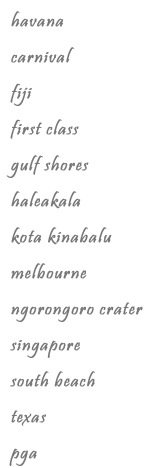 havana
carnival
fiji
first class
gulf shores
haleakala
kota kinabalu
melbourne
ngorongoro crater
singapore
south beach
texas
pga